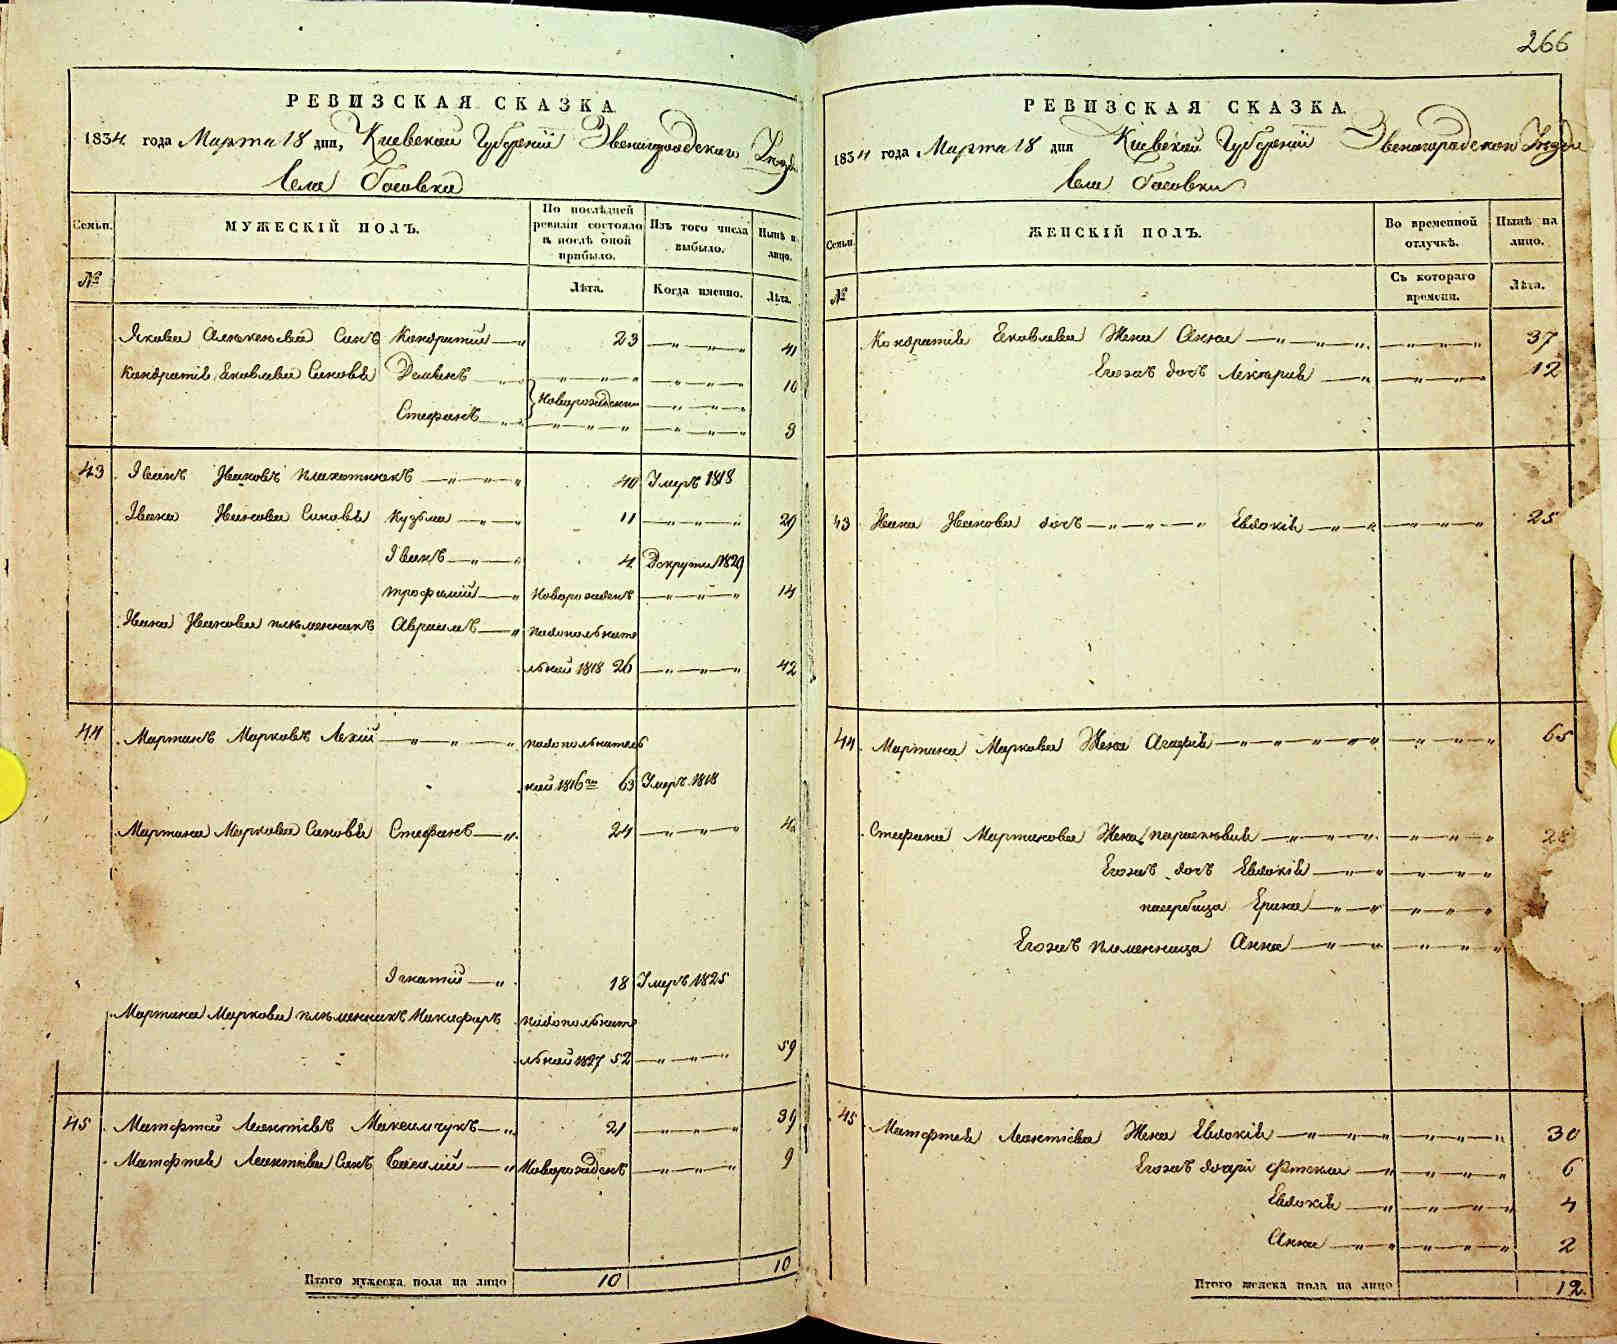 266
РЕВИЗСКАЯ СКАЗКА
1834 года Марта 18 дня, Киевской Губернiи Звенигородского Уезда
Села Гасовки
Семьи. МУЖЕСКIЙ ПОЛЪ. По послѣдней ревизiи состояло и послѣ оной прибыло. Изъ того числа выбыло. Нынѣ на лицо.
№ Лѣта. Когда именно. Лѣта.
Якова Сынъ Кондратiй 23 41
Кондратiя Яковлева Синовя Демянъ 16
Новорожденни
Стефанъ 3
43 Iванъ Ивановъ Плахотнюкъ 40 Умеръ 1818
Iвана Иванова Синовя Кузьма 11 29
Iванъ 4 Врекруты 1829
Трофимiй Новорожденъ 14
Ивана Иванова племенникъ Авраамъ подополните
льной 1818 26 42
44 Мартинъ Марковъ Лехiй подополнитель
ной 1816го 63 Умеръ 1818
Мартина Маркова Синовя Стефанъ 24
Iгнатiй 18 Умеръ 1825
Мартина Маркова племенникъ Никифоръ подополните
льной 1827 52 59
45 Матфтей Леонтiевъ Максимчукъ 21 39
Матфтея Леонтiева Синъ Василiй Новорожденъ 9
Итого мужеска пола на лицо 10 10
РЕВИЗСКАЯ СКАЗКА
1834 года Марта 18 дня Киевской Губернiи Звенигородского Уезда
Села Гасовки
Семьи. ЖЕНСКIЙ ПОЛЪ. Во временной отлучкѣ. Нынѣ на лицо.
№ Съ котораго времени. Лѣта.
Кондратiя Яковлева Жена Анна 37
Егожъ дочь 12
43 Ивана Иванова дочь Евдокiя 25
44 Мартина Маркова Жена Агафiя 65
Стефана Мартинова Жена Параскевiя 28
Егожъ дочь Евдокiя
пасербица Ерина
Егожъ племенница Анна
45 Матфтея Леонтiева Жена Евдокiя 30
Егожъ дочери Фтекла 6
Евдокiя 4
Анна 2
Итого женска пола на лицо 12